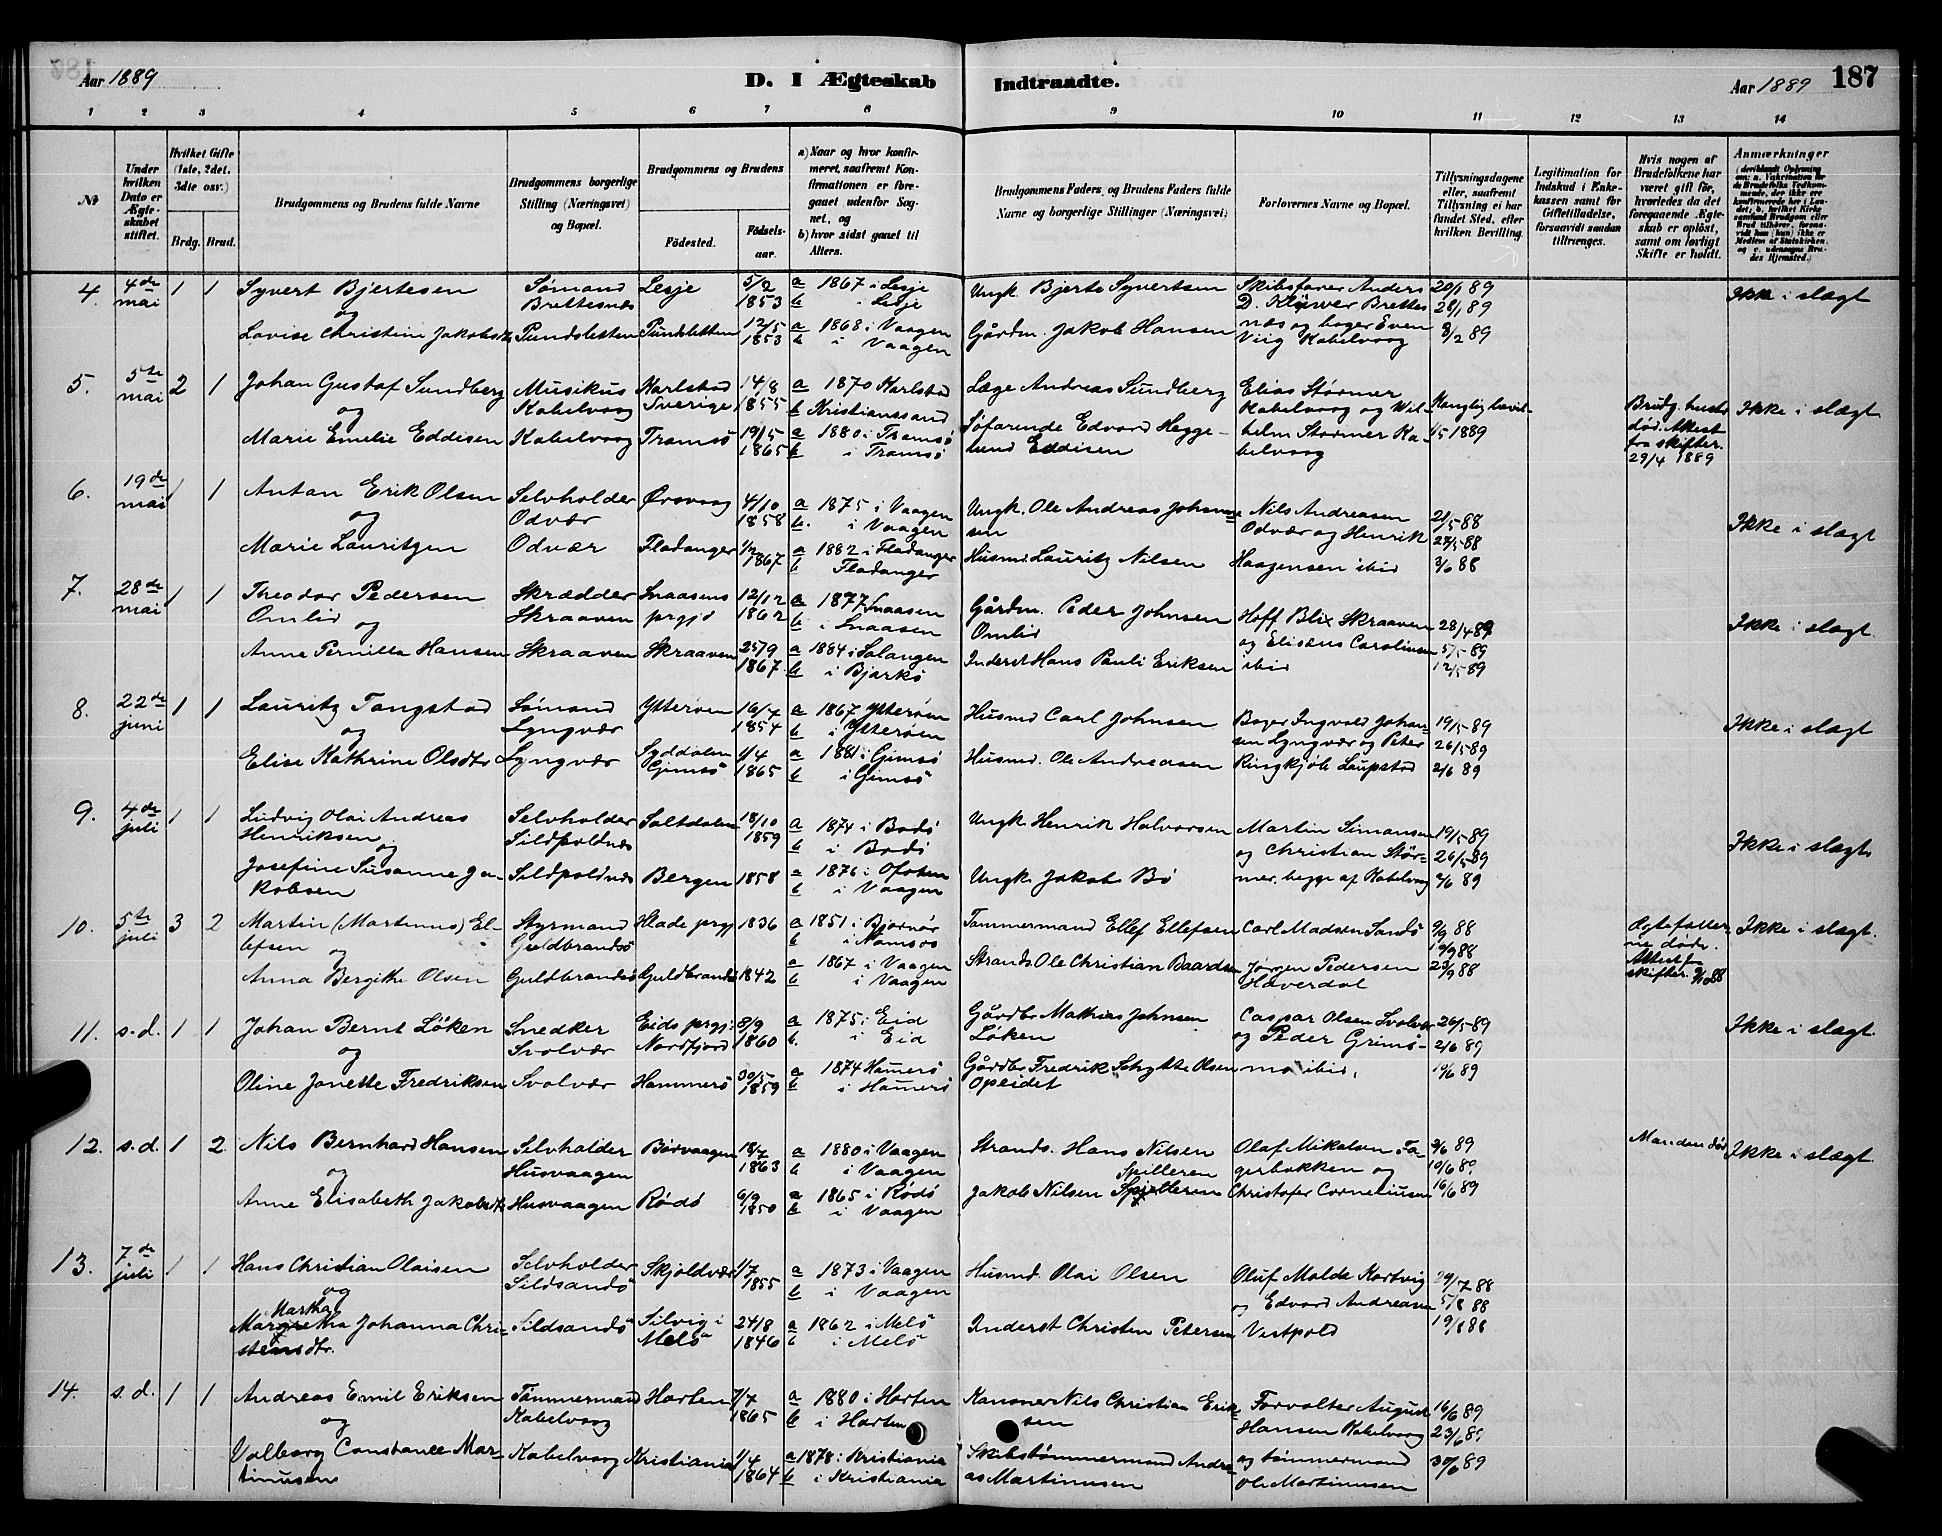 Aar 1889
D. I Ægteskab Indtraadte.
Aar 1889 187
1 2 3 4 5 6 7 8 9 10 11 12 13 14
No
Under hvilken Dato er Ægteskabet stiftet.
Hvilket Gifte (1ste, 2det, 3die osv.)
Brdg. Brud.
Brudgommens og Brudens fulde Navne
Brudgommens borgerlige Stilling (Næringsvei) og Bopæl.
Brudgommens og Brudens
Fødested.
Fødselsaar.
a) Naar og hvor konfirmeret, saafremt Konfirmationen er foregaaet udenfor Sognet, og
b) hvor sidst gaaet til Alters.
Brudgommens Faders og Brudens Faders fulde Navne og borgerlige Stillinger (Næringsvei)
Forlovernes Navne og Bopæl.
Tillysningsdagene eller, saafremt Tillysning ei har fundet Sted, efter hvilken Bevilling.
Legitimation for Indskud i Enkekassen samt for Giftetilladelse, forsaavidt saadan tiltrænges.
Hvis nogen af Brudefolkene har været gift før, hvorledes da det foregaaende Ægteskab er opløst, samt om lovligt Skifte er holdt.
Anmærkninger
4. 4de mai 1 1 Syvert Bjertesen Sømand Brettesnæs Lesje 5/2 1853 a 1867 i Lesje b i Lesje Ungk. Bjerte Syvertsen Skibsfører Anders D. Klüwer Brettesnæs og bager Even Viig Kabelvaag 20/1 89 28/1 89 3/2 89 Ikke i slægt
og
Lovise Christine Jakobsdtr Pundsletten Pundsletten 12/5 1853 a 1868 i Vaagen b i Vaagen Gårdm. Jakob Hansen
5. 5te mai 2 1 Johan Gustaf Sundberg Musikus Kabelvaag Karlstad Sverige 14/8 1855 a 1870 Karlstad b Kristianssand Læge Andreas Sundberg Elias Størmer Kabelvaag og Wilhelm Størmer Kabelvaag Kongligbevil- 1/5 1889 Brudg. hustr død. Attest fra skifter. 29/4 1889 Ikke i slægt
og
Marie Emelie Eddisen Kabelvaag Tromsø 19/5 1865 a 1880 i Tromsø b i Tromsø Søfarende Edvard Heggelund Eddisen
6. 19de mai 1 1 Antan Erik Olsen Selvholder Odvær Ørsvaag 4/10 1858 a 1875 i Vaagen b. i Vaagen Ungk. Ole Andreas Johannesen Nils Andreasen Odvær og Henrik Haagensen ibid 21/5 88 27/5 88 3/6 88 Ikke i slægt
og
Marie Lauritzen Odvær Fladanger 1/2 1867 a 1882 i Fladanger b Fladanger Husmd. Lauritz Nilsen
7. 28de mai 1 1 Theodor Pedersen Omlid Skrædder Skraaven Snaasens prgjd 12/12 1862 a 1877 Snaasen b. i Snaasen Gårdm. Peder Johnsen Omlid Hoff Blix Skraaven og Elisæus Carolinsen ibid 28/4 89 5/5 89 12/5 89 Ikke i slægt
og
Anne Pernilla Hansen Skraaven Skraaven 25/9 1867 a 1884 i Salangen b i Bjarkø Inderst Hans Pauli Eriksen
8. 22de juni 1 1 Lauritz Tangstad Sømand Lyngvær Ytterøen 16/7 1854 a 1867 Ytterøen b i Ytterøen Husmd Carl Johnsen Bager Ingvald Johansen Lyngvær og Peter Ringkjøb Laupstad 19/5 89 26/5 89 2/6 89 Ikke i slægt
og
Elise Kathrine Olsdtr Lyngvær Syddalen Gimsö 1/4 1865 a 1881 i Gimsö b i Gimsö Husmd. Ole Andreasen
9. 4de juli 1 1 Ludvig Olai Andreas Henriksen Selvholder Sildpoldnæs Saltdalen 18/10 1859 a 1874 i Bodö b i Bodö Ungk Henrik Halvorsen Martin Simonsen og Christian Størmer, begge af Kabelvaag 19/5 89 26/5 89 2/6 89 Ikke i slægt
og
Josefine Susanne Jakobsen Sildpoldnæs Bergen 1858 a 1876 i Ofoten b i Vaagen Ungk Jakob Bö
10. 5te juli 3 2 Martin (Martinus) Ellefsen Styrmand Guldbrandsö Klade prgj 1836 a 1851 i Bjørnør b i Namsos Tømmermand Ellef Ellefsen Carl Madsen Sandö 9/9 88 Ægtefællerne døde. Attest f. skifter. Ikke i slægt.
og
Anna Bergithe Olsen Guldbrandsö Guldbrandsö 1842 a 1867 i Vaagen b i Vaagen Strands. Ole Christian Baardsen Jørgen Pedersen Haverdal 23/9 88
11. s.d. 1 1 Johan Bernt Løken Snedker Svolvær Eids prgj: Nordfjord 8/9 1860 a 1875 i Eid b. i Eid Gårdbr Mathias Johnsen Løken Caspar Olsen Svolvær og Peder Grimsmo ibid. 26/5 89 2/6 89 Ikke i slægt
og
Oline Janette Fredriksen Svolvær Hammerö 30/5 1859 a 1874 Hamerö b i Hamerö Gårdbr Fredrik Schytte Olsen Opeidet
12. s.d. 1 2. Nils Bernhard Hansen Selvholder Husvaagen Børvaagen 18/7 1863 a 1880 i Vaagen b i Vaagen Strands. Hans Nilsen Olaf Mikalsen Fagerbakken og Christofer Corneliusen 2/6 89 10/6 89 16/6 89 Manden død Ikke i slægt
og
Anne Elisabeth Jakobsdtr Husvaagen Rödö 6/9 1850 a 1865 i Rödö b i Vaagen Jakob Nilsen Spilleren
13. 7de juli 1 1 Hans Christian Olaisen Selvholder Sildsandö Skjoldvær 1/7 1855 a 1873 i Vaagen b i Vaagen Husmd. Olai Olsen Oluf Molde Kortvig og Edvard Andreasen Vestpold 29/7 88 5/8 88 19/8 88
og
Martha
Margretha Johanna Christensdtr. Sildsandö Silvig i Melö 24/8 1846 a 1862 i Melö b i Melö Inderst Christen Petersen
14. s.d. 1 1 Andreas Emil Eriksen Tömmermand Kabelvaag Horten 7/7 1865 a 1880 i Horten b i Horten Kanoner Nils Christian Eriksen Forvalter August Hansen Kabelvaag og tømmermand Ole Martinusen 16/6 89 23/6 89 30/6 89
og
Valborg Constance Martinusen Kabelvaag Kristiania 1/4 1864 a 1878 i Kristiania b i Kristiania Skibstømmermand Andreas Martinusen